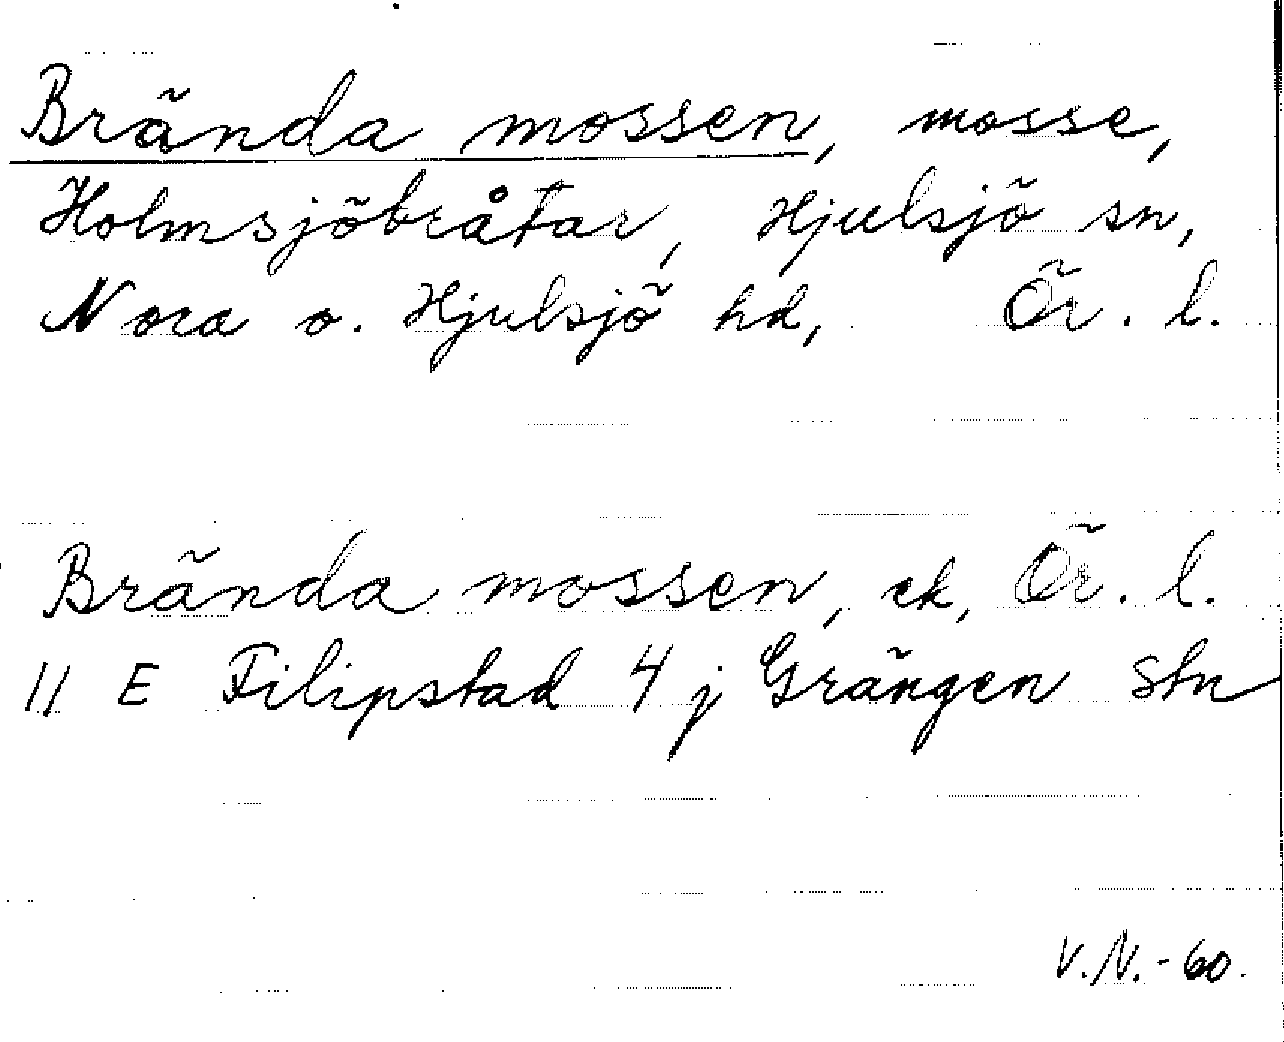 Brända mossen, mosse,
Holmsjöbråtar, Hjulsjö sn,
Nora o. Hjulsjö hd, Ör. l.
Brända mossen, ek, Ör. l.
11 E Filipstad 4 j Grängen Stn
V.N.-60.